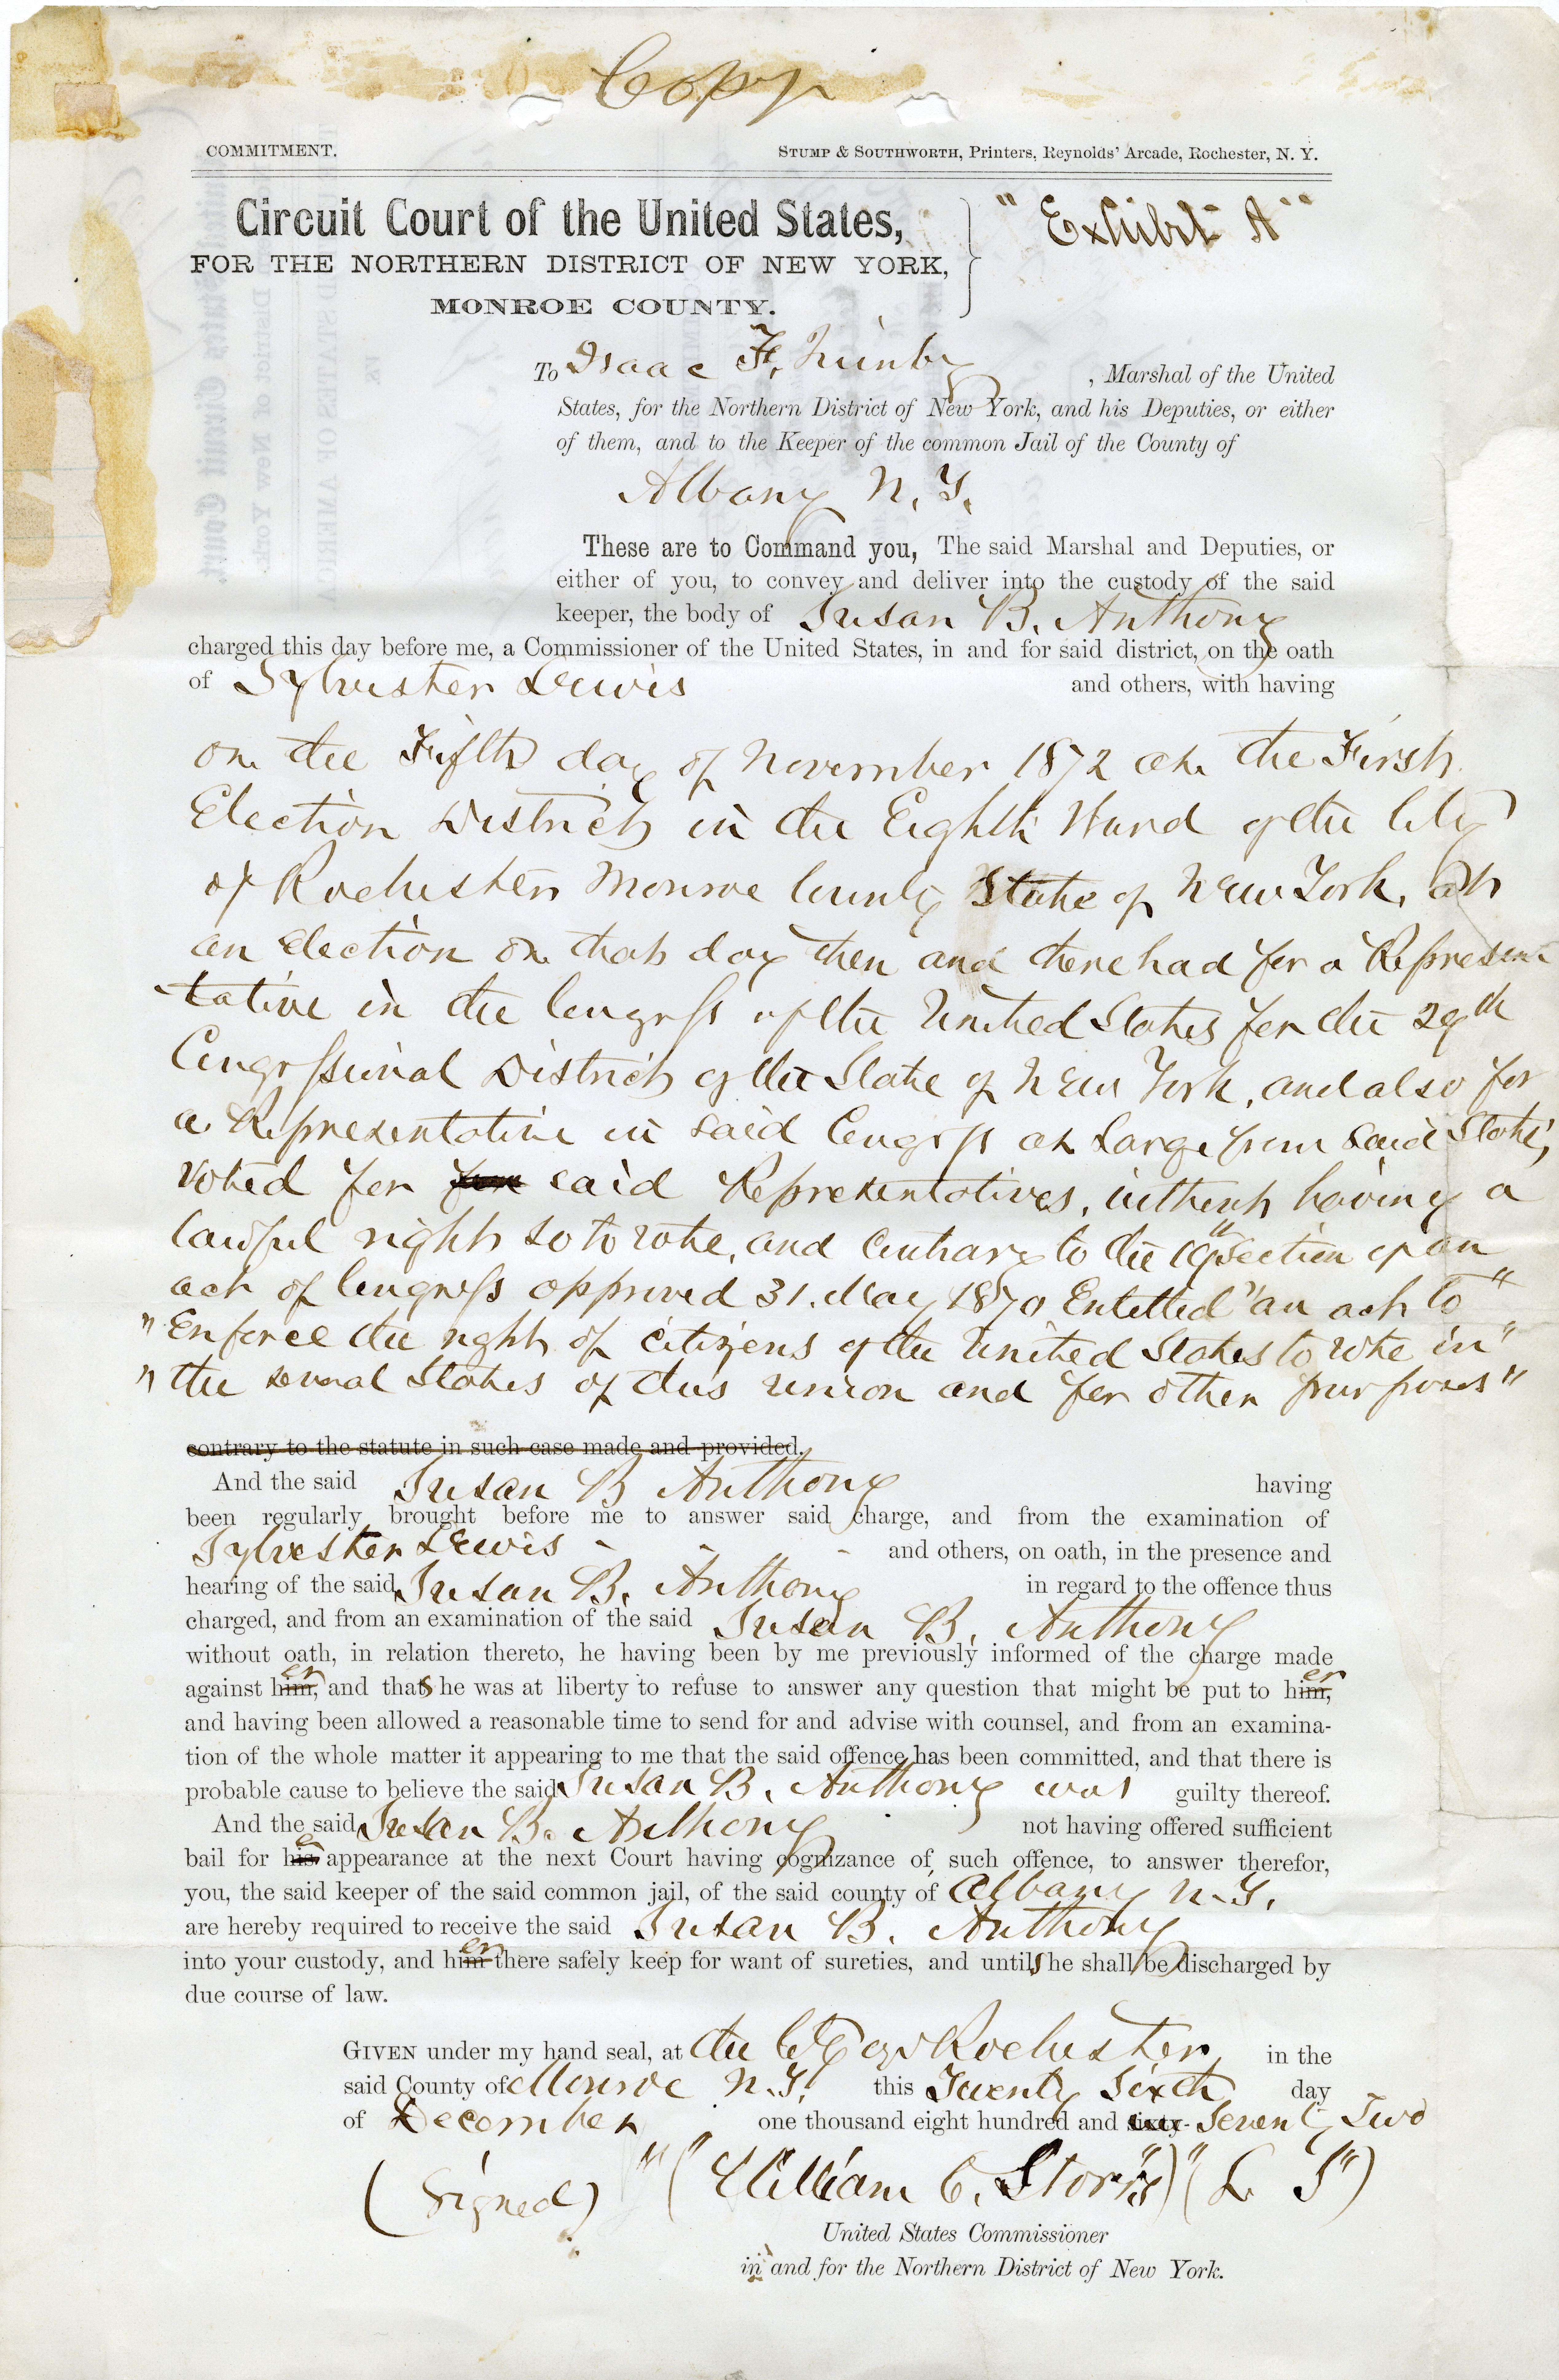 Copy
COMMITMENT. STUMP & SOUTHWORTH, Printers, Reynolds' Arcade, Rochester, N. Y.
Circuit Court of the United States,
"Exhibit A"
FOR THE NORTHERN DISTRICT OF NEW YORK,
MONROE COUNTY.
To Isaac F. Quinby , Marshal of the United
States, for the Northern District of New York, and his Deputies, or either
of them, and to the Keeper of the common Jail of the County of
Albany N. Y.
These are to Command you, The said Marshal and Deputies, or
either of you, to convey and deliver into the custody of the said
keeper, the body of Susan B. Anthony
charged this day before me, a Commissioner of the United States, in and for said district, on the oath
of Sylvester Lewis and others, with having
on the Fifth day of November 1872 at the First
Election District in the Eighth Ward of the City
of Rochester Monroe County State of New York, at
an election on that day then and there had for a Represen
-tative in the Congress of the United States for the 29th
Congressional District of the State of New York, and also for
a Representative in said Congress at large from said State,
voted for for said Representatives, without having a
lawful right so to vote, and contrary to the 19" Section of an
act of Congress approved 31. May 1870 Entitled "an act to"
"Enforce the right of citizens of the United States to vote in"
"the several States of this union and for other purposes"
contrary to the statute in such case made and provided.
And the said Susan B Anthony having
been regularly brought before me to answer said charge, and from the examination of
Sylvester Lewis - - - and others, on oath, in the presence and
hearing of the said Susan B. Anthony in regard to the offence thus
charged, and from an examination of the said Susan B. Anthony
without oath, in relation thereto, he having been by me previously informed of the charge made
against him, er and that s he was at liberty to refuse to answer any question that might be put to him, er
and having been allowed a reasonable time to send for and advise with counsel, and from an examina-
tion of the whole matter it appearing to me that the said offence has been committed, and that there is
probable cause to believe the said Susan B. Anthony was guilty thereof.
And the said Susan B. Anthony not having offered sufficient
bail for his appearance at the next Court having cognizance of such offence, to answer therefor,
you, the said keeper of the said common jail, of the said county of Albany N. Y.
are hereby required to receive the said Susan B. Anthony
into your custody, and him er there safely keep for want of sureties, and until s he shall be discharged by
due course of law.
GIVEN under my hand seal, at the City of Rochester in the
said County of Monroe N. Y. this Twenty Sixth day
of December one thousand eight hundred and sixty- Seventy Two
(Signed) "("William C. Storrs")" (L S")
United States Commissioner
in and for the Northern District of New York.